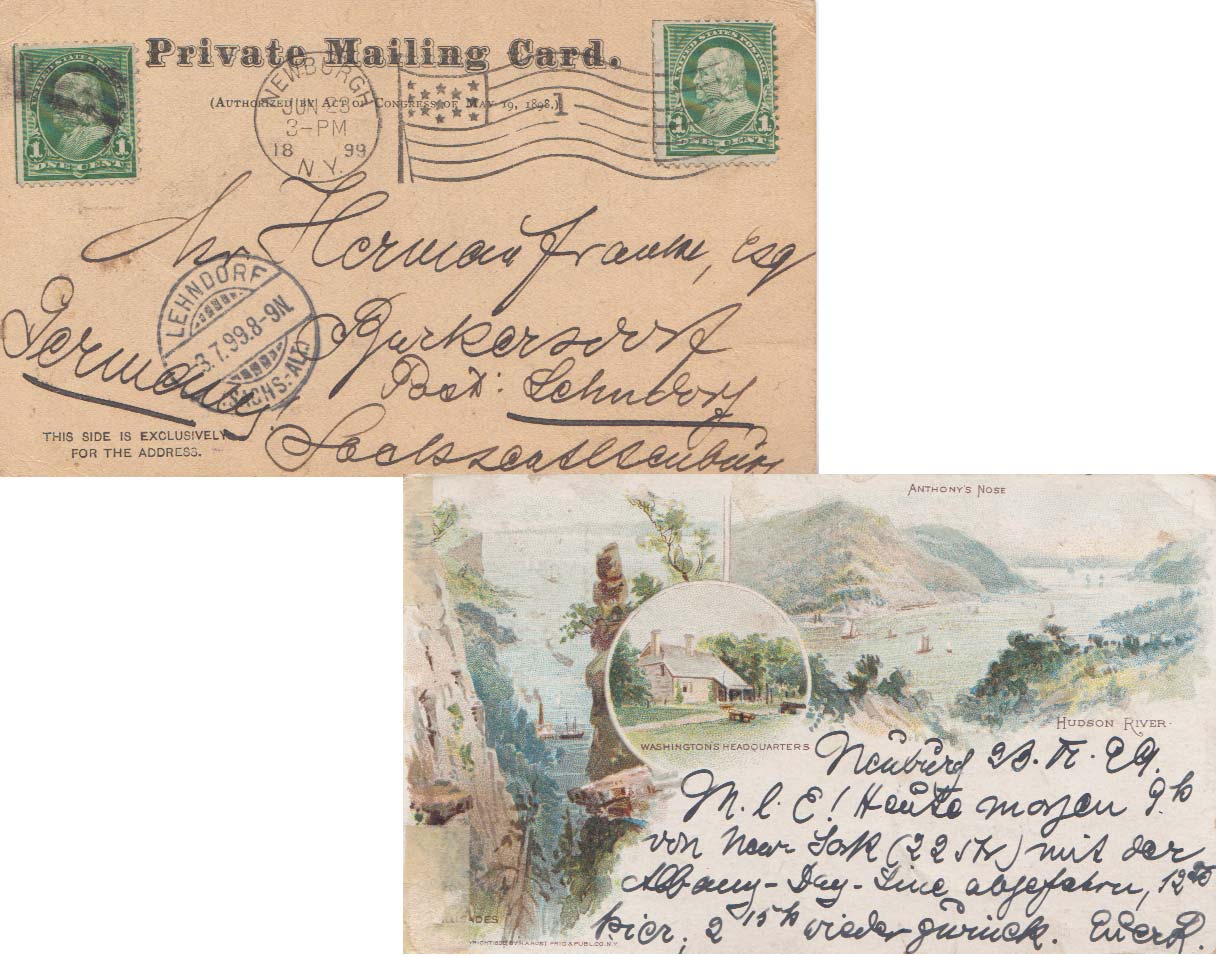 Private Mailing Card.
(AUTHORIZED BY ACT OF CONGRESS OF MAY 19, 1898.)
UNITED STATES POSTAGE
1 1
ONE CENT
NEWBURGH
JUN 23
3-PM
18 99
N.Y.
1
UNITED STATES POSTAGE
1 1
ONE CENT
Herman Franke, Esq
LEHNDORF
3.7.99.8-9N.
(SACHS.-ALT.)
Burkersdorf
Germany!
Post: Lehndorf
Sachsenaltenburg
THIS SIDE IS EXCLUSIVELY
FOR THE ADDRESS.
ANTHONY'S NOSE
HUDSON RIVER.
WASHINGTON'S HEADQUARTERS
Neuburg 23. VI. 99.
M. l. E! Heute morgen 9h
von New-York (22 str) mit der
Albany-Day-Line abgefahren, 12
hier, 2 15h wieder zurück. Euer H.